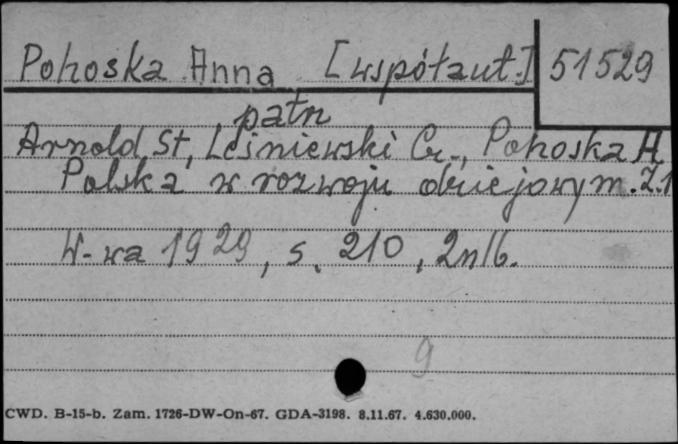 Pohoska Anna [współaut.] 51529
patrz
Arnold St, Leśniewski Cz., Pohoska H
Polska w rozwoju dziejowym. Z.1
W-wa 1929, s. 210, 2nlb.
9
CWD. B-15-b. Zam. 1726-DW-On-67. GDA-3198. 8.11.67. 4.630.000.